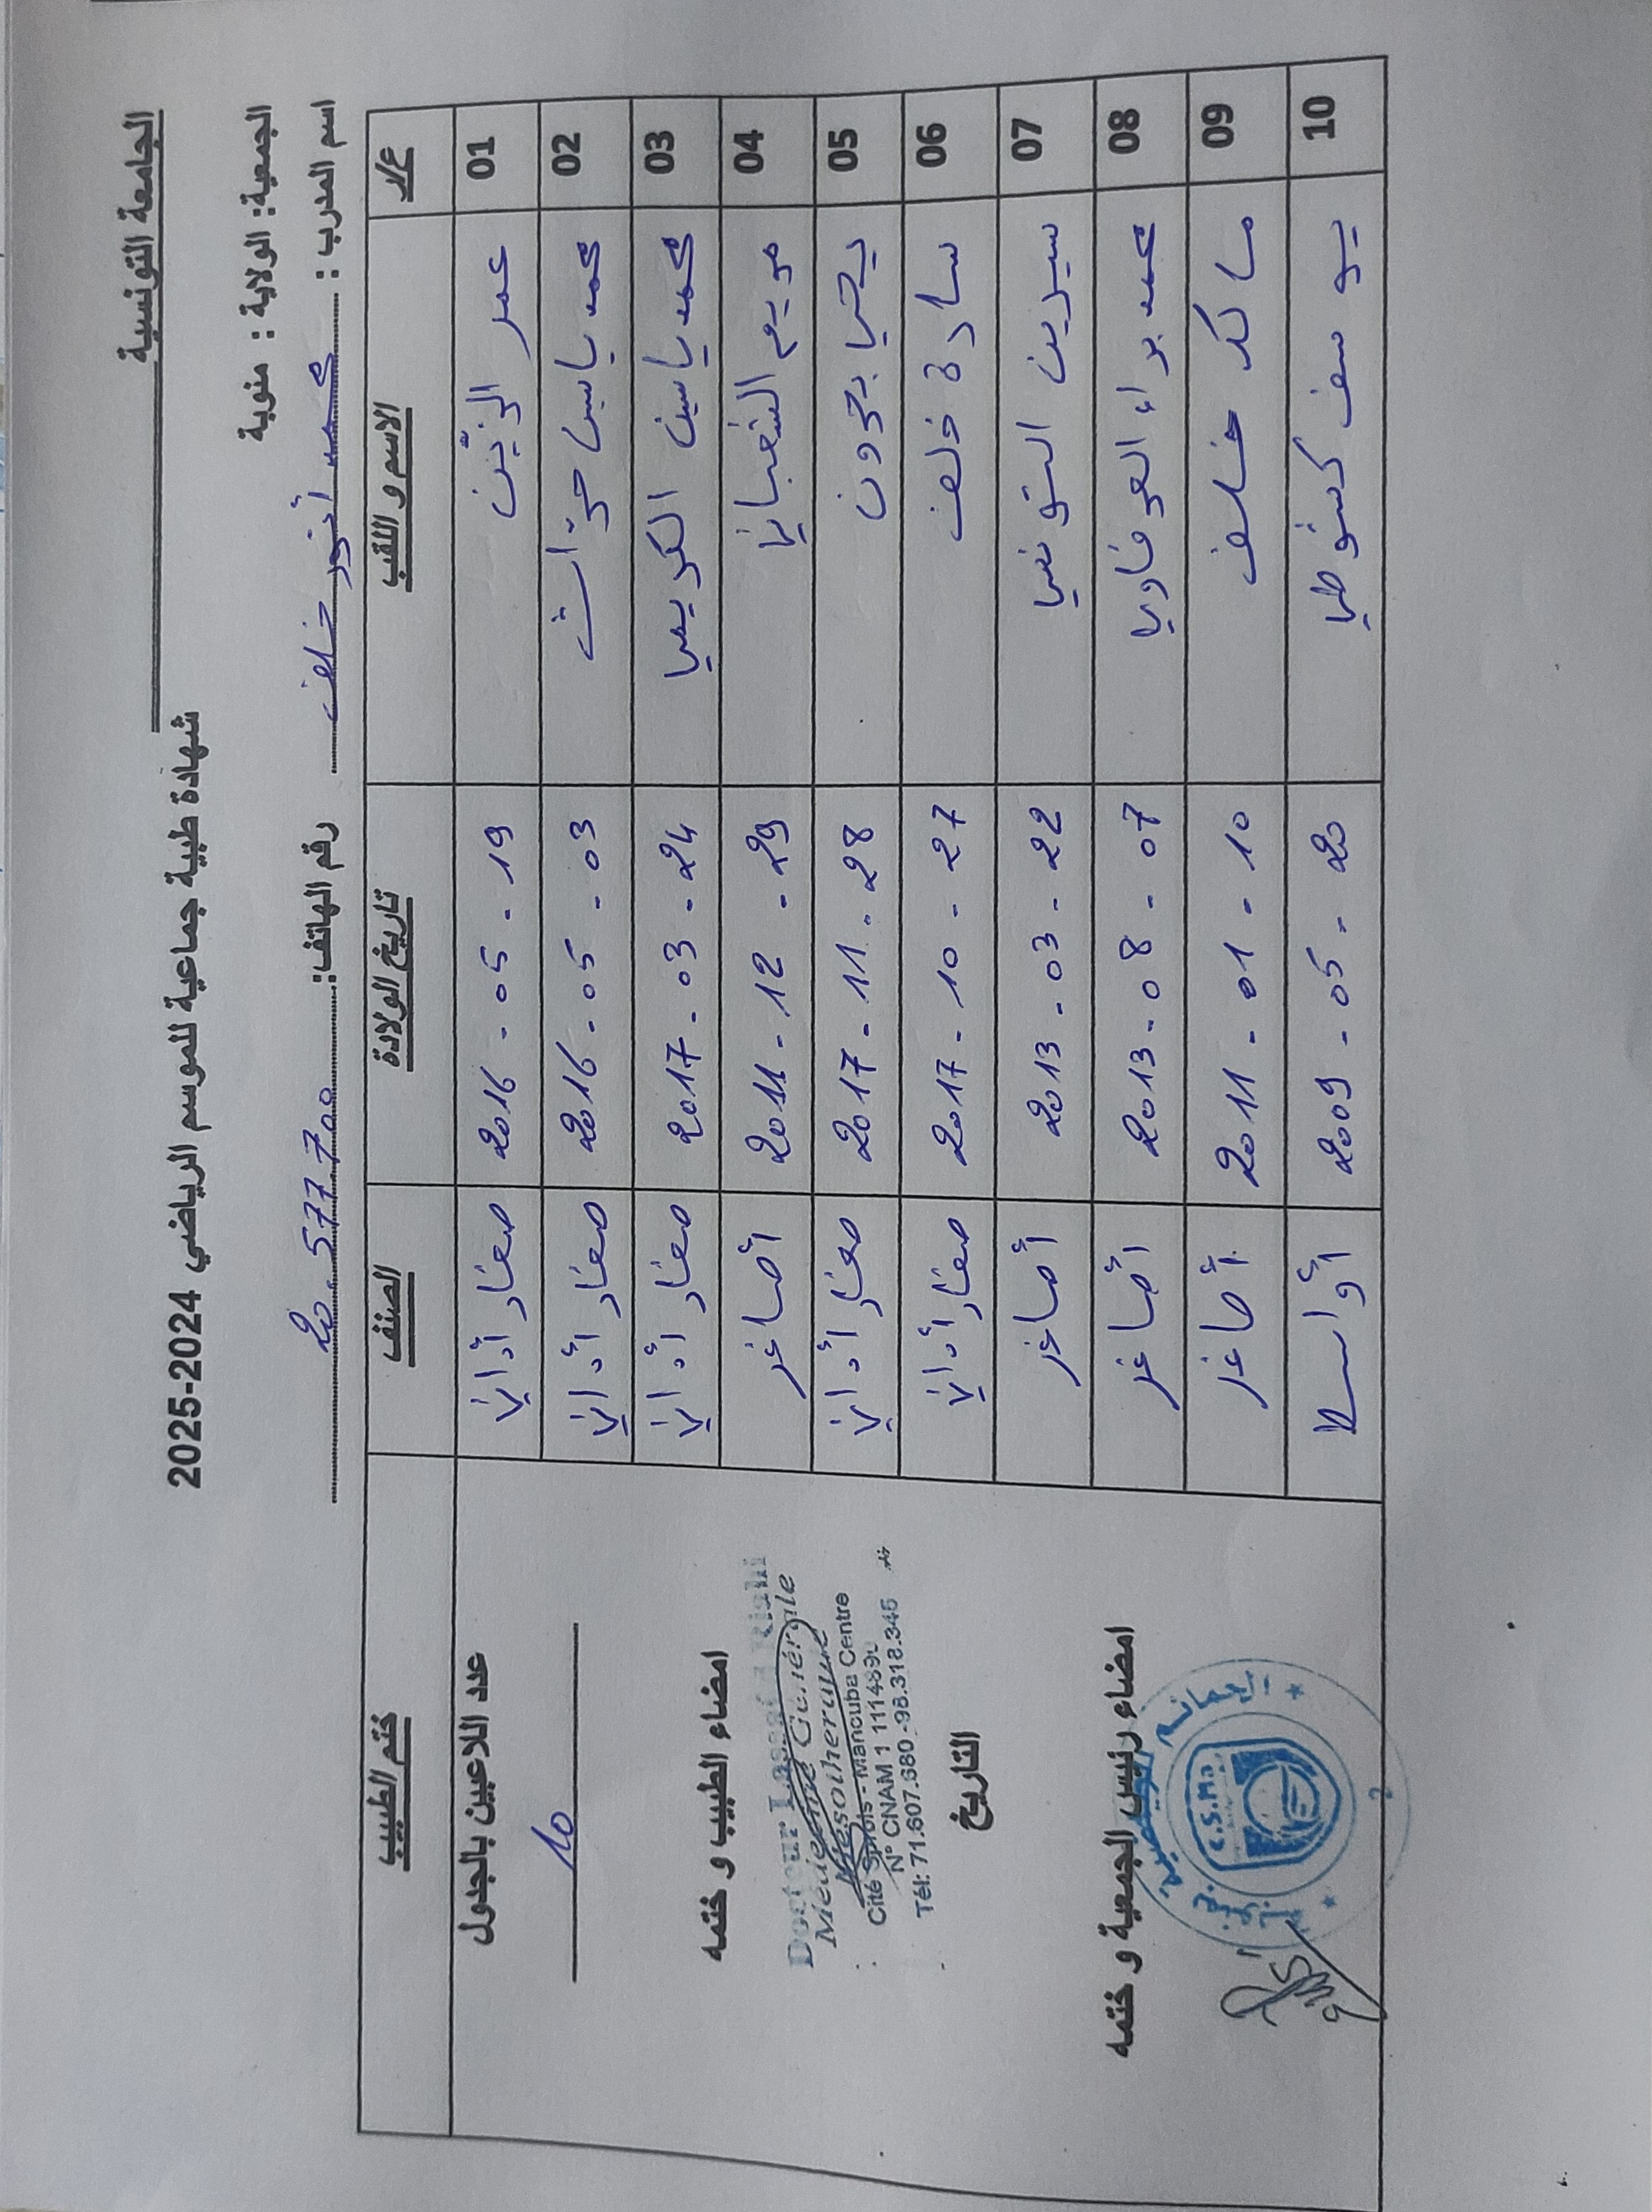 الجامعة التونسية
شهادة طبية جماعية للموسم الرياضي 2024-2025
الجمعية: الولاية : منوبة
اسم المدرب : محمد أنور خلف رقم الهاتف: 20.577.700
ع/ر الاسم و اللقب تاريخ الولادة الصنف ختم الطبيب
01 عمر الزين 2016 - 05 - 19 صغار أداني
02 محمد ياسين حزات 2016 - 05 - 03 صغار أداني
03 محمد ياسين الكريمي 2017 - 03 - 24 صغار أداني
04 مريم الشعباني 2011 - 12 - 29 أصاغر
05 يحيا بحرون 2017 - 11 - 28 صغار أداني
06 سارة خلف 2017 - 10 - 27 صغار أداني
07 سيرين التونسي 2013 - 03 - 22 أصاغر
08 محمد براء العرفاوي 2013 - 08 - 07 أصاغر
09 مالك خلف 2011 - 01 - 10 أصاغر
10 يوسف 2009 - 05 - 20 أواسط
عدد اللاعبين بالجدول
10
امضاء الطبيب و ختمه
Docteur
Médecine Générale
Mésothérapie
Cité Sprols - Manouba Centre
N° CNAM 1 111489
Tél: 71.607.680 - 98.318.345
التاريخ
امضاء رئيس الجمعية و ختمه
C.S.Ma